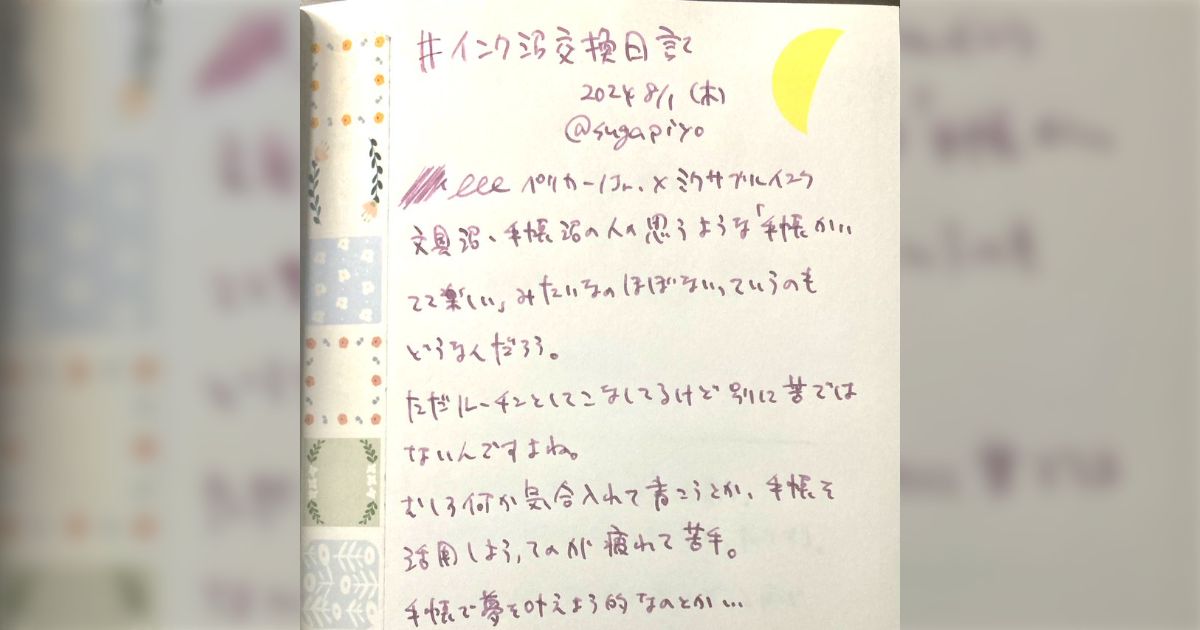 #インク沼交換日記
2024 8/1 (木)
@sugapiyo
eee ペリカーノJr. × ミクサブルインク
文具沼、手帳沼の人の思うような「手帳かい
てて楽しい」みたいなのほぼない、ていうのも
どうなんだろう。
ただルーチンとしてこなしてるけど別に苦では
ないんですよね。
むしろ何か気合入れて書こうとか、手帳を
活用しよう、てのが疲れて苦手。
手帳で夢を叶えよう的なのとか…